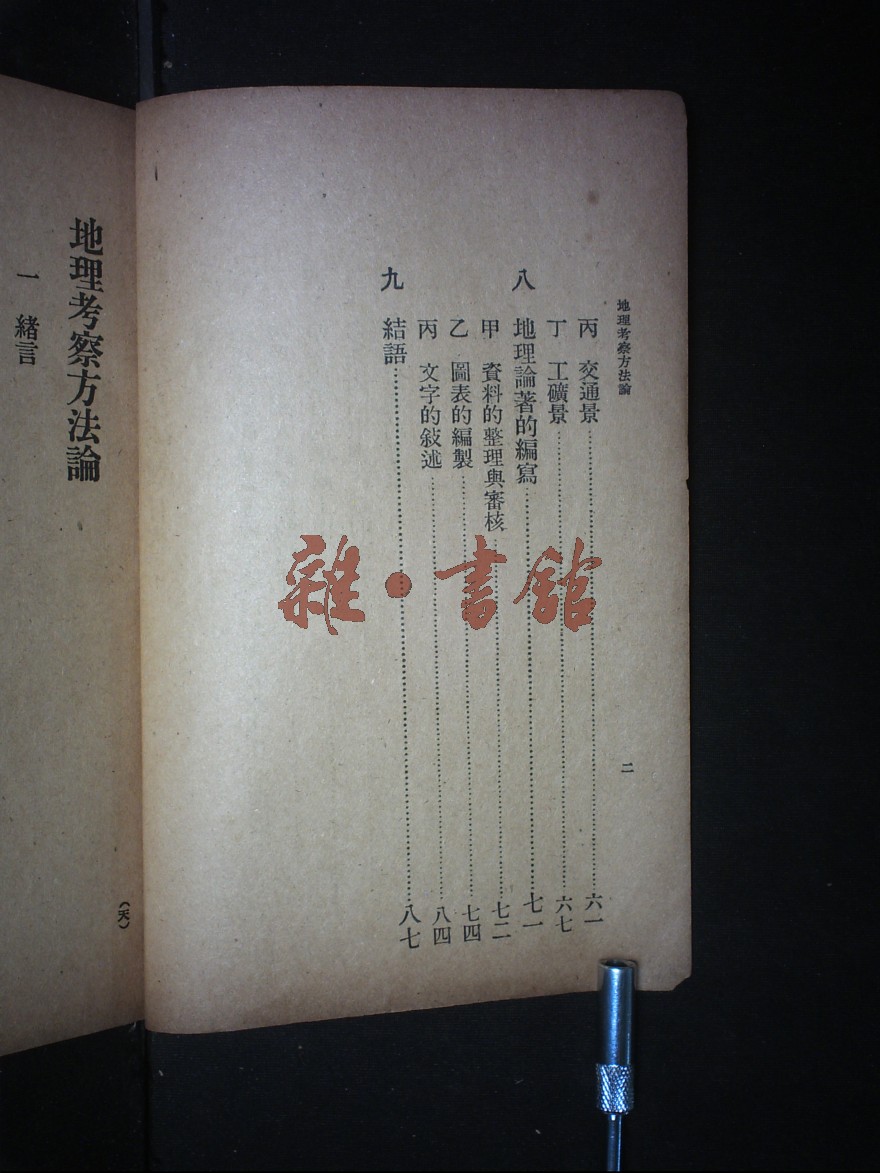 地理考察方法論
二
丙 交通景……六一
丁 工礦景……六七
八 地理論著的編寫……七一
甲 資料的整理與審核……七二
乙 圖表的編製……七四
丙 文字的敍述……八四
九 結語……八七
雜·書館
地理考察方法論
一 緒言
(天)